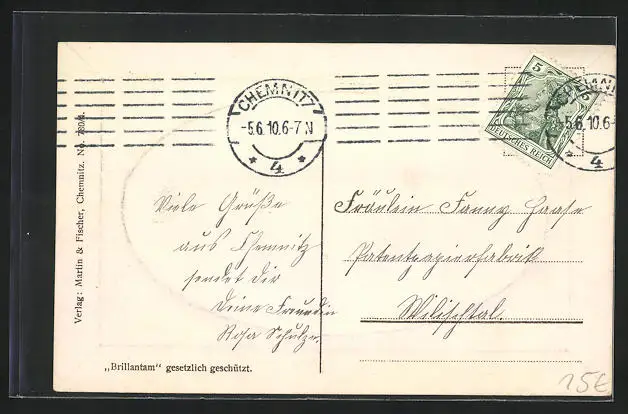 CHEMNITZ
-5.6.10.6-7N
* 4 *
5
DEUTSCHES REICH
CHEMNITZ
-5.6.10.6-
4
Verlag: Martin & Fischer, Chemnitz. No.
Viele Grüße
aus Chemnitz
sendet dir
Deine Freundin
Rosa Schulze
Fräulein Fanny Haase
Patentpapierfabrik
Wilischtal.
„Brillantam“ gesetzlich geschützt.
15€